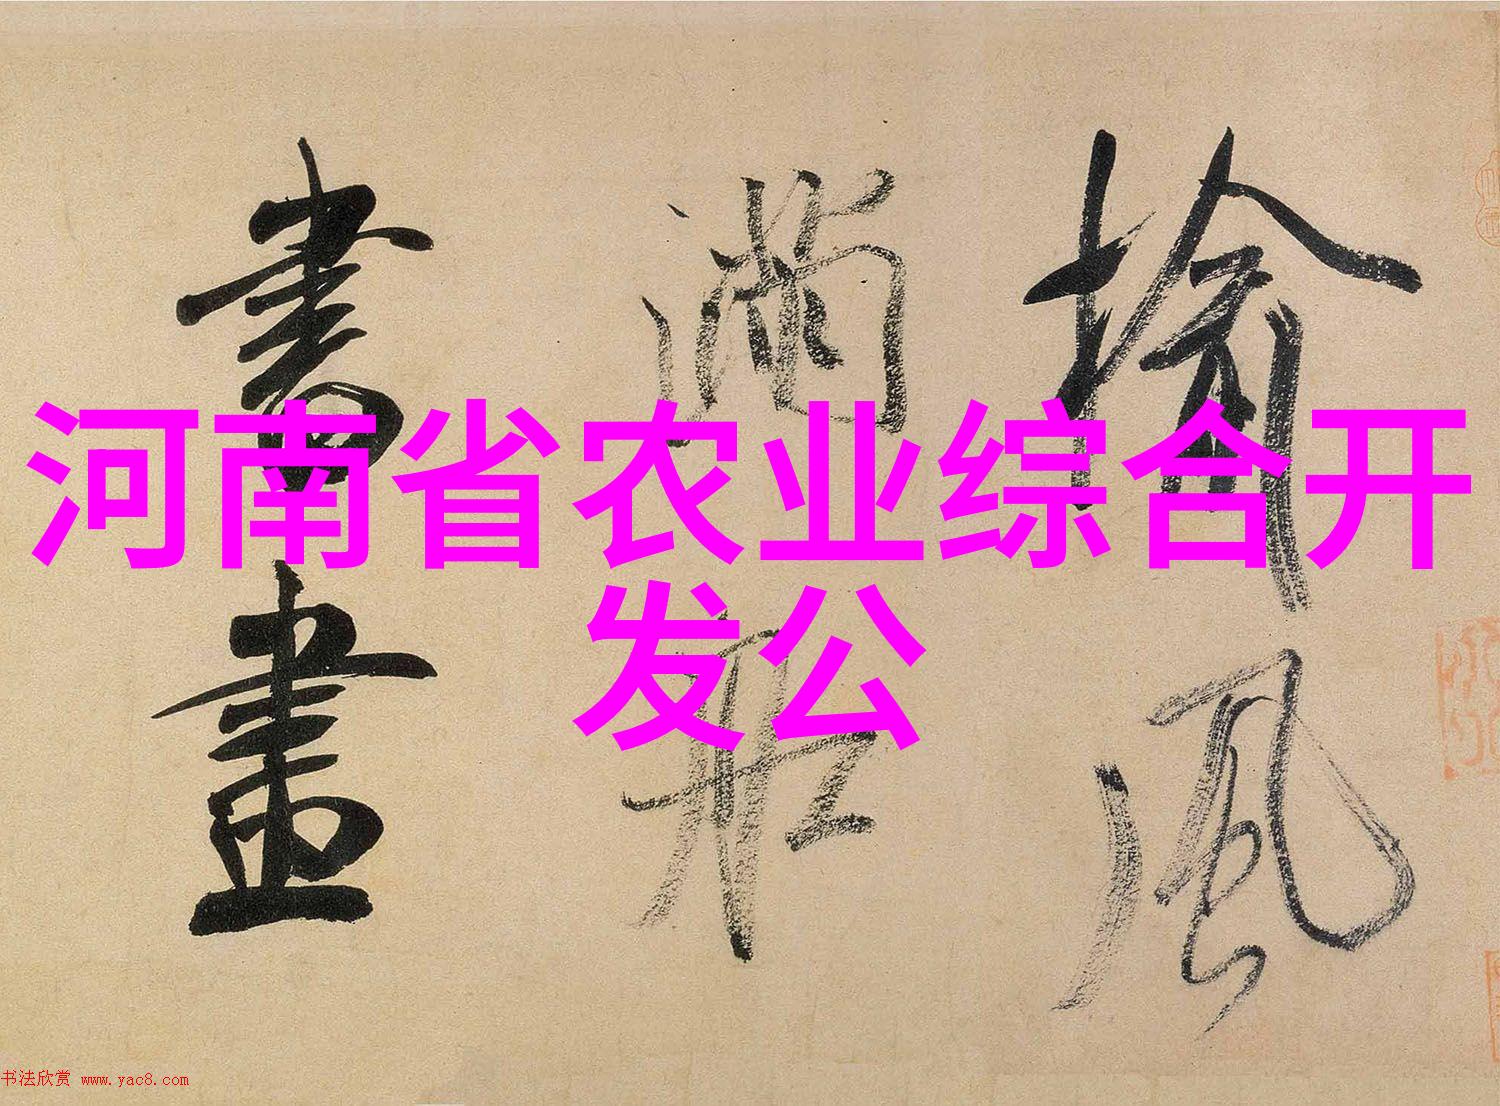 河南省农业综合开
发公
榆風
滿舡
書畫
书法欣赏 www.yac8.com